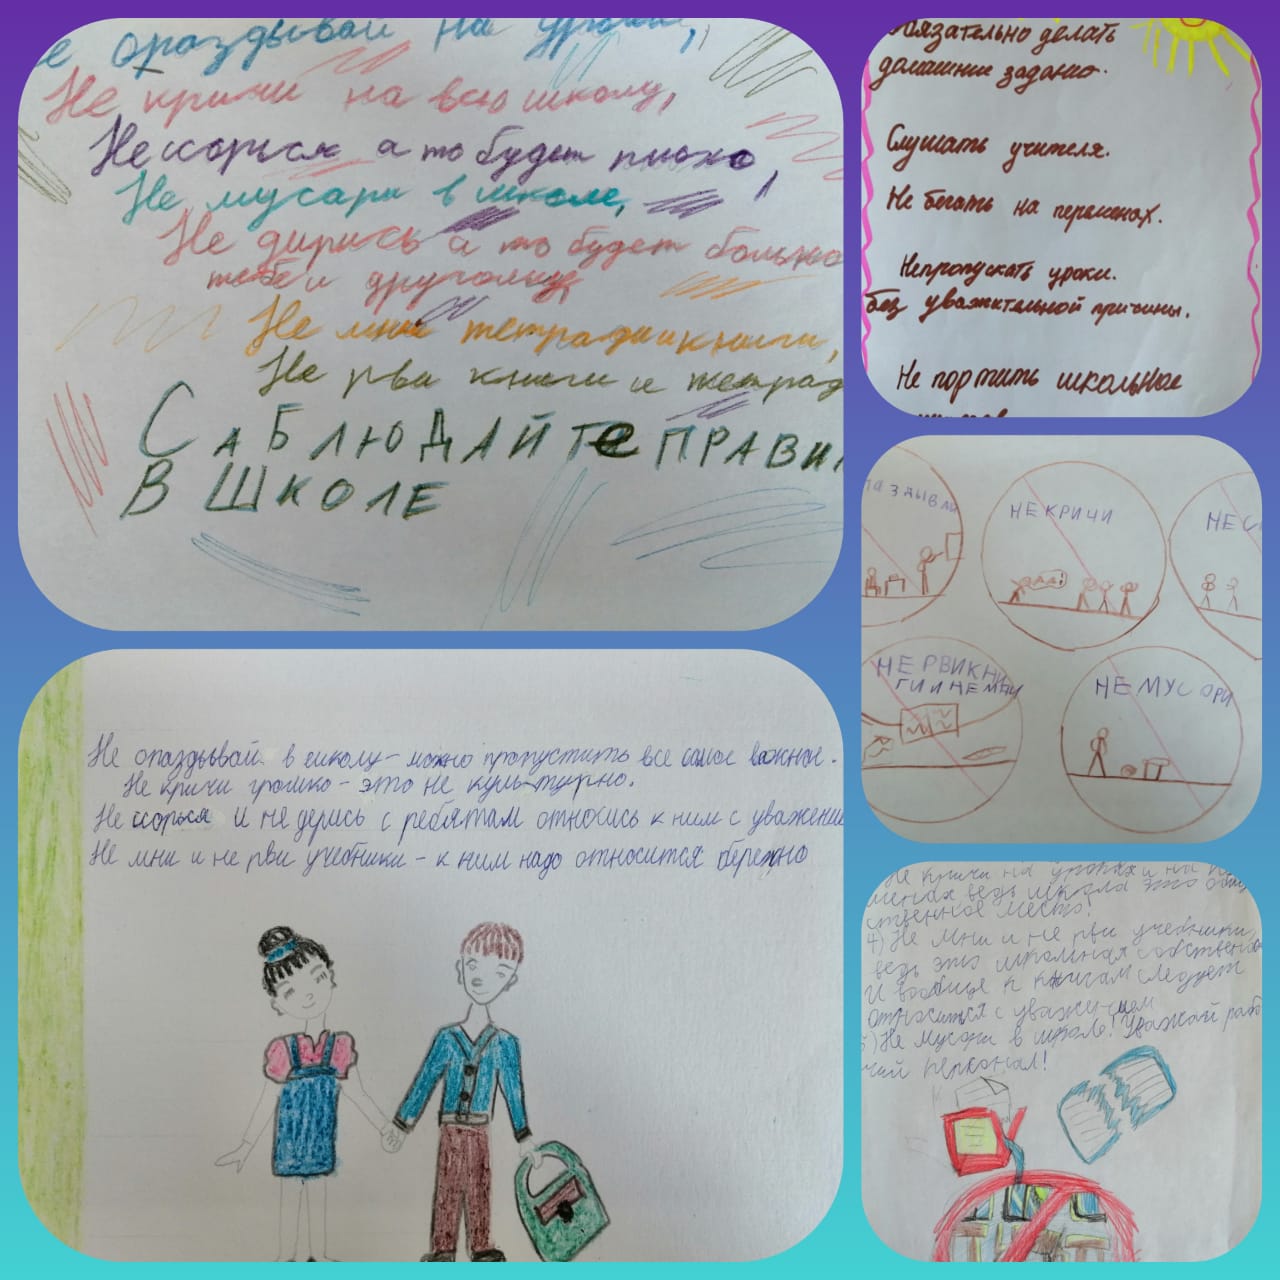 е опаздывай на уроки,
Не кричи на всю школу,
Нессорься а то будет плохо,
Не мусари в школе,
Не дирись а то будет больно
тебе и другому,
Не мни тетрадииккниги,
Не рви книги и тетрад
САБЛЮДАЙТЕ ПРАВИ
В ШКОЛЕ
бязательно делать
домашние задание.
Слушать учителя.
Не бегать на переменах.
Непропускать уроки.
без уважительной причины.
Не портить школьное
аздывай
НЕ КРИЧИ
НЕ С
НЕ РВИ КНИ
ГИ И НЕ МНИ
НЕ МУСОРИ
Не опаздывай в школу - можно пропустить все самое важное.
Не кричи громко - это не культурно.
Не ссорься и не дерись с ребятам относись к ним с уважение
Не мни и не рви учебники - к ним надо относится бережно
Не кричи на уроках и на п
менах ведь школа это общ
ственное место!
4) Не мни и не рви учебники,
ведь это школьная собственно
И вообще к книгам следует
относится с уважением
5) Не мусори в школе! Уважай рабо
чий персонал!